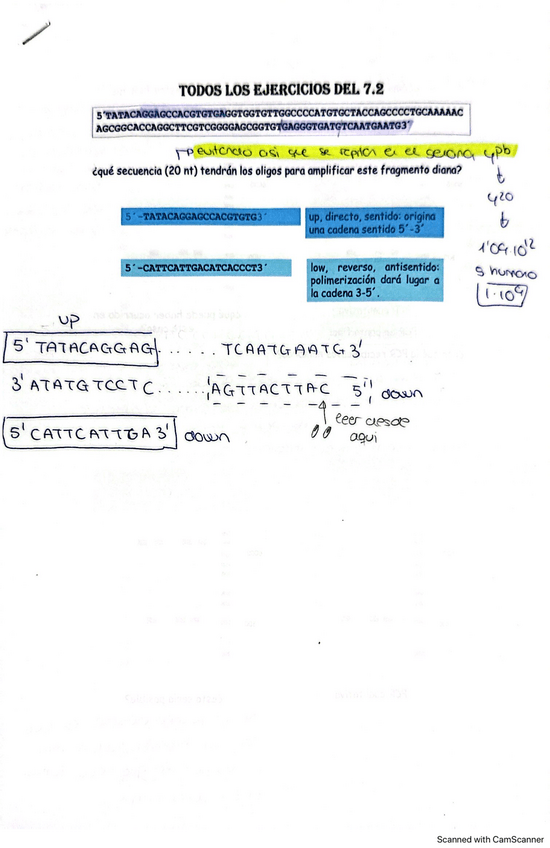 TODOS LOS EJERCICIOS DEL 7.2
5´TATACAGGAGCCACGTGTGAGGTGGTGTTGGCCCCATGTGCTACCAGCCCCTGCAAAAAC
AGCGGCACCAGGCTTCGTCGGGGAGCGGTGTGAGGGTGATGTCAATGAATG3´
evitando así que se repitan en el genoma 4pb
¿qué secuencia (20 nt) tendrán los oligos para amplificar este fragmento diana?
4^20
1'09·10^12
5´-TATACAGGAGCCACGTGTG3´
up, directo, sentido: origina
una cadena sentido 5´-3´
5´-CATTCATTGACATCACCCT3´
low, reverso, antisentido:
polimerización dará lugar a
la cadena 3-5´.
humano
1·10^9
UP
5' TATACAGGAG...... TCAATGAATG 3'
3' ATATGTCCTC...... AGTTACTTAC 5' down
5' CATTCATTGA 3' down
leer desde
aqui
Scanned with CamScanner